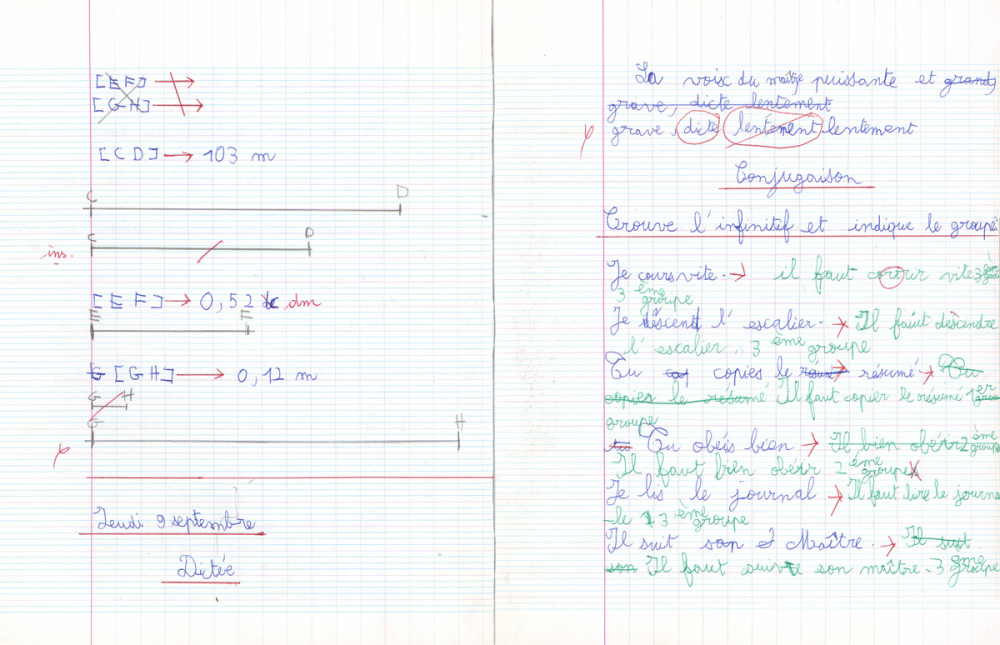 [EF] →
[GH] →
[CD] → 103 m
C D
C D
ins.
[EF] → 0,52 dm
E F
G [GH] → 0,12 m
G H
G H
Jeudi 9 septembre
Dictée
La voix du maître puissante et grand,
grave, dicte lentement
grave, dicte lentement lentement
Conjugaison
Trouve l'infinitif et indique le groupe
Je cours vite. → il faut courir vite 3 ème
3 ème groupe
Je descend l'escalier. → Il faut descendre
l'escalier. 3 ème groupe
Tu copies le → résumé. → Tu
copies le résumé Il faut copier le résumé 1er
groupe
Tu obéis bien → Il bien obéir 2 ème groupe
Il faut bien obéir 2 ème groupe
Je lis le journal → Il faut lire le journa
-le 3 ème groupe
Il suit son Maître. → Il suit
son Il faut suivre son maître - 3 ème groupe